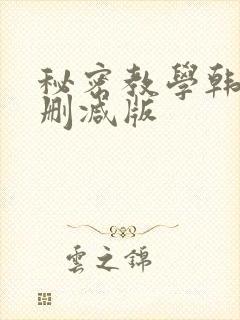 秘密教學韩
删减版
雲之錦